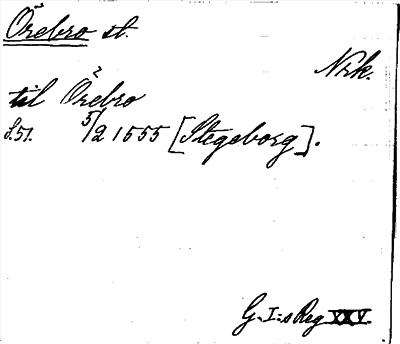 Örebro st.
Nrk.
til Örebro
S. 51. 5/2 1555 [Stegeborg].
G. I:s Reg XXV.